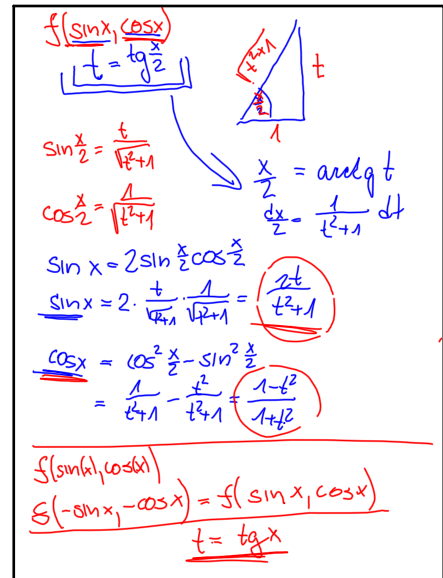 f(sinx, cosx)
t = tg x/2
√(t²+1)
t
x/2
1
sin x/2 = t/√(t²+1)
cos x/2 = 1/√(t²+1)
x/2 = arctg t
dx/2 = 1/(t²+1) dt
sin x = 2 sin x/2 cos x/2
sin x = 2 · t/√(t²+1) · 1/√(t²+1) = 2t/(t²+1)
cosx = cos² x/2 - sin² x/2
= 1/(t²+1) - t²/(t²+1) = (1-t²)/(1+t²)
f(sin(x), cos(x))
f(-sinx, -cosx) = f(sinx, cosx)
t = tgx